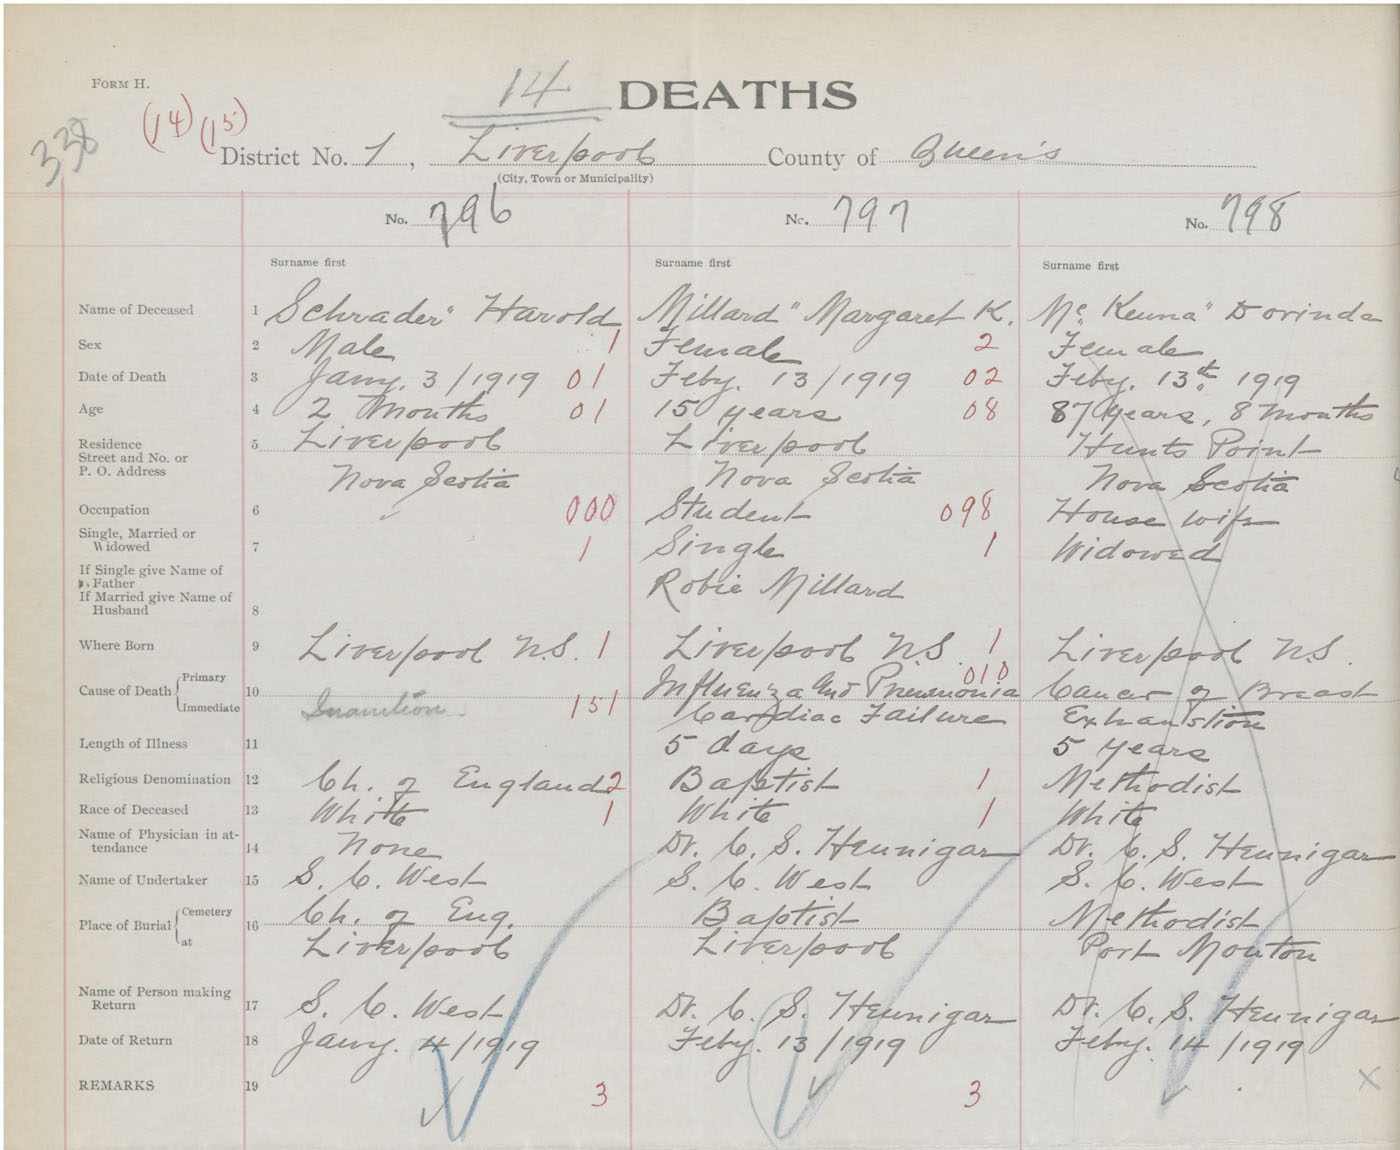 FORM H.
14 DEATHS
338 (14) (15)
District No. 1, Liverpool County of Queen's
(City, Town or Municipality)
No. 796 No. 797 No. 798
Surname first Surname first Surname first
Name of Deceased 1 Schrader" Harold Millard" Margaret K. Mc Kenna" Dorinda
Sex 2 Male 1 Female 2 Female
Date of Death 3 Jany. 3/1919 01 Feby. 13/1919 02 Feby. 13th 1919
Age 4 2 Months 01 15 years 08 87 years, 8 months
Residence 5 Liverpool Liverpool Hunts Point
Street and No. or
P. O. Address Nova Scotia Nova Scotia Nova Scotia
Occupation 6 000 Student 098 House wife
Single, Married or
Widowed 7 1 Single 1 Widowed
If Single give Name of
Father Robie Millard
If Married give Name of
Husband 8
Where Born 9 Liverpool N.S. 1 Liverpool N.S. 1 Liverpool N.S.
010
Cause of Death Primary 10 Influenza and Pneumonia Cancer of Breast
Immediate Inanition 151 Cardiac Failure Exhaustion
Length of Illness 11 5 days 5 years
Religious Denomination 12 Ch. of England 2 Baptist 1 Methodist
Race of Deceased 13 White 1 White 1 White
Name of Physician in at-
tendance 14 None Dr. C. S. Hennigar Dr. C. S. Hennigar
Name of Undertaker 15 S. C. West S. C. West S. C. West
Place of Burial Cemetery 16 Ch. of Eng. Baptist Methodist
at Liverpool Liverpool Port Mouton
Name of Person making
Return 17 S. C. West Dr. C. S. Hennigar Dr. C. S. Hennigar
Date of Return 18 Jany. 4/1919 Feby. 13/1919 Feby. 14/1919
REMARKS 19 3 3 X